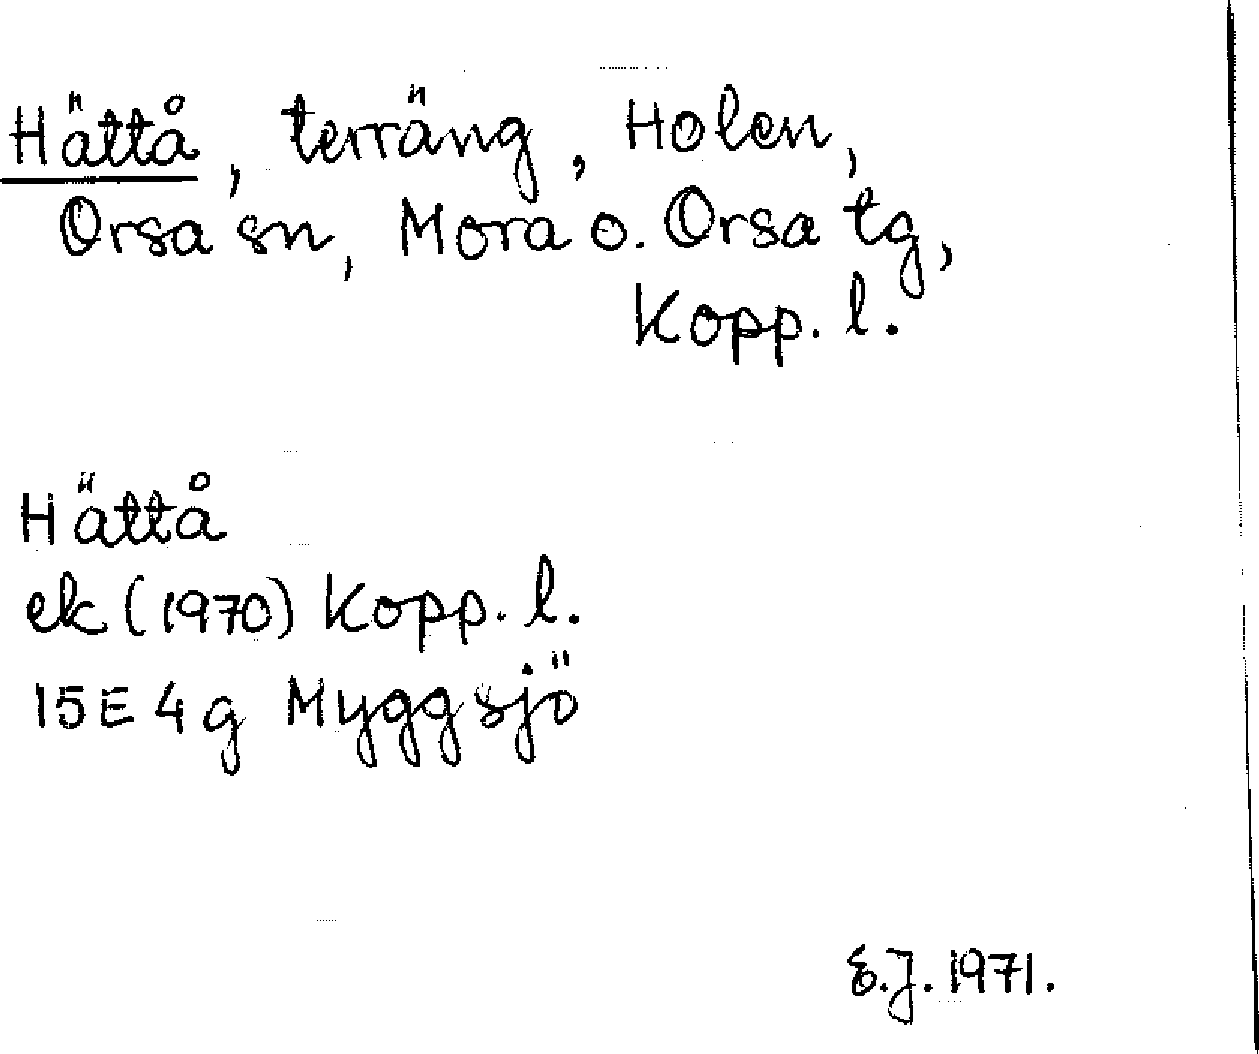 Hättå, terräng, Holen,
Orsa sn, Mora o. Orsa tg,
Kopp. l.
Hättå
ek (1970) Kopp. l.
15E 4g Myggsjö
E.J. 1971.